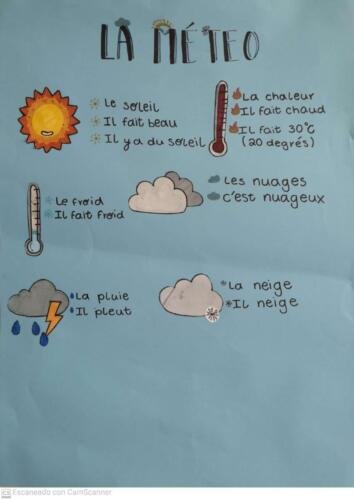 LA MÉTEO
Le soleil
Il fait beau
Il y a du soleil
La chaleur
Il fait chaud
Il fait 30°c
(20 degrés)
Le froid
Il fait froid
Les nuages
c'est nuageux
La pluie
Il pleut
La neige
Il neige
Escaneado con CamScanner